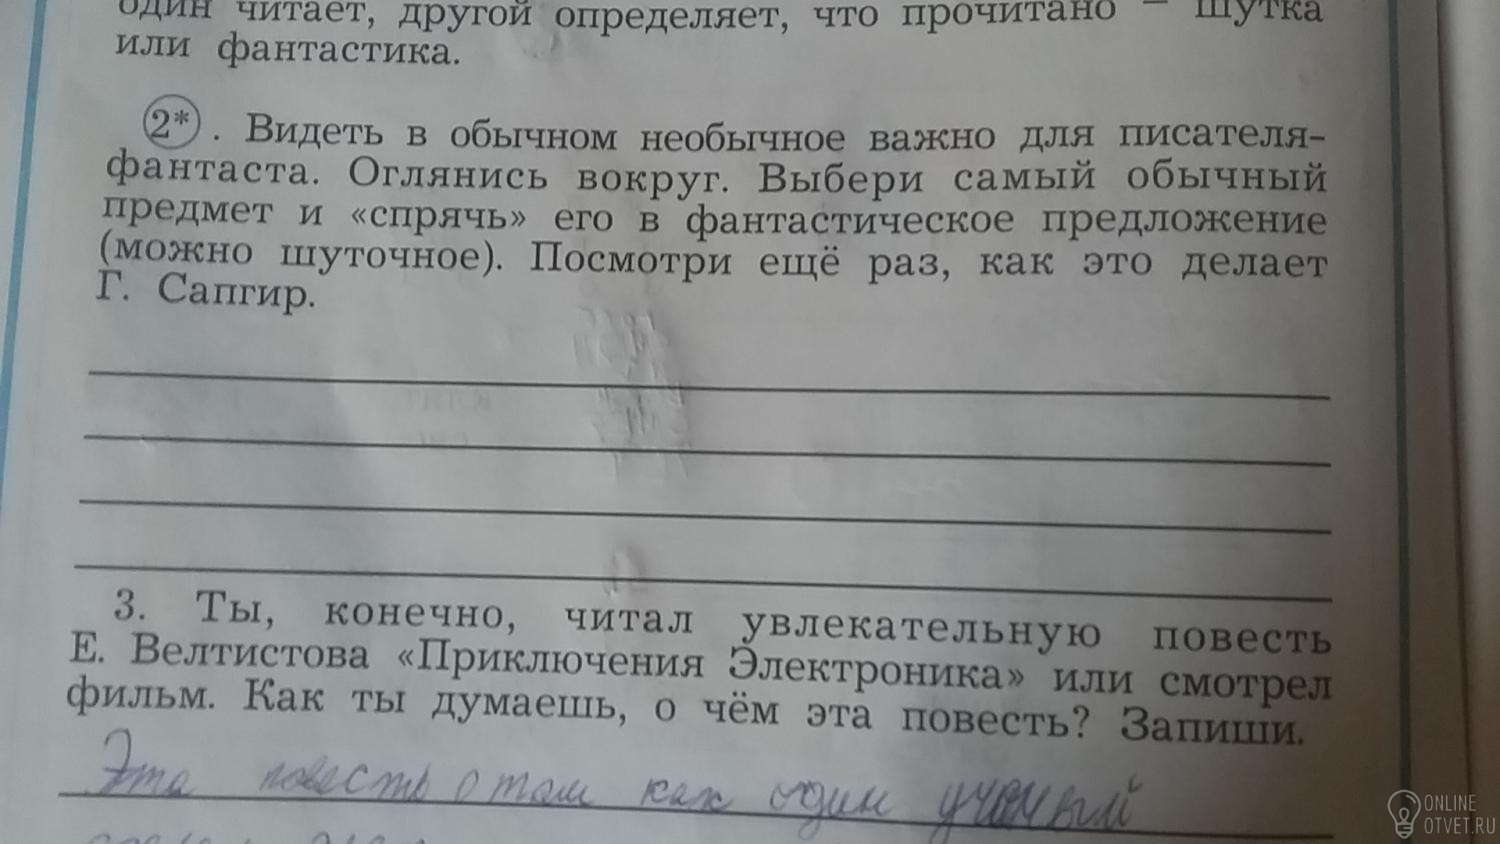 один читает, другой определяет, что прочитано – шутка
или фантастика.
2*. Видеть в обычном необычное важно для писателя-
фантаста. Оглянись вокруг. Выбери самый обычный
предмет и «спрячь» его в фантастическое предложение
(можно шуточное). Посмотри ещё раз, как это делает
Г. Сапгир.
3. Ты, конечно, читал увлекательную повесть
Е. Велтистова «Приключения Электроника» или смотрел
фильм. Как ты думаешь, о чём эта повесть? Запиши.
Эта повесть о том как один учёный
ONLINE
OTVET.RU